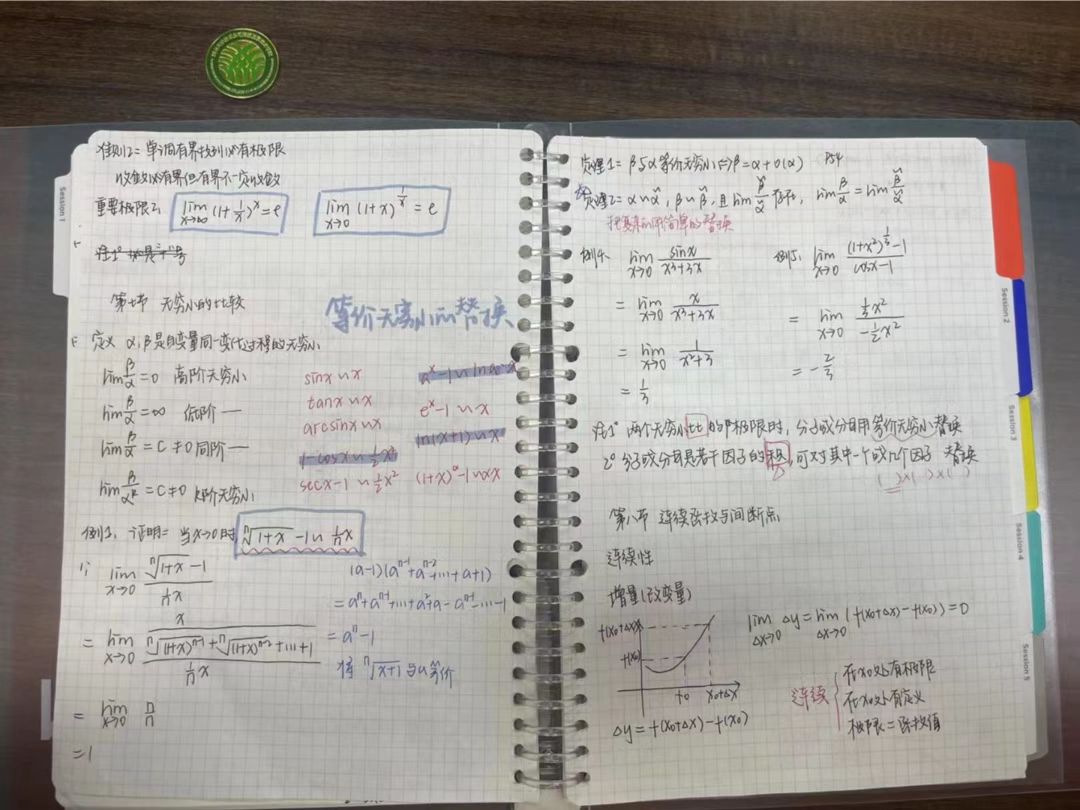 准则2: 单调有界数列必有极限
收敛必有界但有界不一定收敛
重要极限2: lim x→∞ (1+1/x)^x = e lim x→0 (1+x)^(1/x) = e
第七节 无穷小的比较
等价无穷小的替换
定义 α,β是自变量同一变化过程的无穷小
lim β/α = 0 高阶无穷小
lim β/α = ∞ 低阶—
lim β/α = C ≠ 0 同阶—
lim β/α^k = C ≠ 0 k阶无穷小
sinx ~ x
tanx ~ x
arcsinx ~ x
1-cosx ~ 1/2 x²
secx-1 ~ 1/2 x²
a^x-1 ~
e^x-1 ~ x
ln(x+1) ~ x
(1+x)^α-1 ~ αx
例1. 证明: 当x→0时 ⁿ√(1+x) -1 ~ 1/n x
lim x→0 (ⁿ√(1+x) -1)/(1/n x)
= lim x→0 (x/(ⁿ√(1+x)^(n-1) + ⁿ√(1+x)^(n-2) + … + 1))/(1/n x)
= lim x→0 n/n
= 1
(a-1)(a^(n-1)+a^(n-2)+…+a+1)
= a^n+a^(n-1)+…+a²+a-a^(n-1)-…-1
= a^n-1
将 ⁿ√(x+1) 与a等价
定理1: β与α等价无穷小 ⇔ β=α+o(α) P54
定理2: α~α̃, β~β̃, 且 lim β̃/α̃ 存在, lim β/α = lim β̃/α̃
把复杂的用简单的替换
例4. lim x→0 sinx/(x³+3x)
= lim x→0 x/(x³+3x)
= lim x→0 1/(x²+3)
= 1/3
例5. lim x→0 ((1+x²)^(1/3)-1)/(cosx-1)
= lim x→0 (1/3 x²)/(-1/2 x²)
= -2/3
注1° 两个无穷小比的极限时, 分子或分母用等价无穷小替换
2° 分子或分母是若干因子的积, 可对其中一个或几个因子替换
( )×( )×( )
第八节 连续函数与间断点
连续性
增量(改变量)
f(x0+Δx)
f(x0)
x0 x0+Δx
Δy = f(x0+Δx)-f(x0)
lim Δx→0 Δy = lim Δx→0 (f(x0+Δx)-f(x0)) = 0
连续
在x0处有极限
在x0处有定义
极限=函数值
Session 1
Session 2
Session 3
Session 4
Session 5